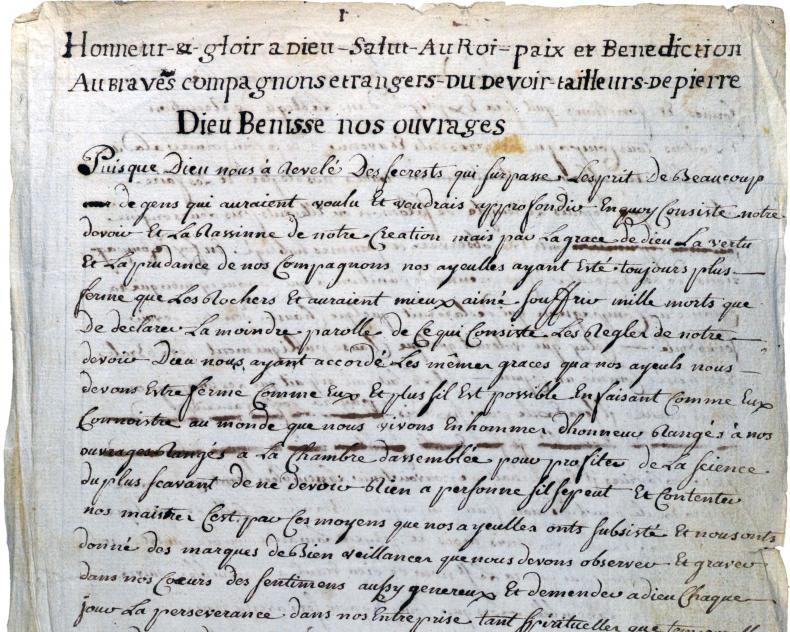 1
Honneur-&-gloir a Dieu-Salut-Au Roi-paix et Benediction
Au Bravēs compagnons etrangers-Du Devoir-tailleurs-De pierre
Dieu Benisse nos ouvrages
Puis que Dieu nous à Revelé Des secrests qui surpasse Lesprit de Beaucoup
de gens qui auraient voulu Et voudrais approfondir En quoy Consiste notre
devoir Et La Rassinne de notre Creation mais par La grace de dieu La vertu
Et La prudance de nos Compagnons nos ayeulles ayant Esté toujours plus
ferme que Les Rochers Et auraient mieux aimé souffrir mille morts que
de declarer La moindre parolle de Ce qui Consiste Les Regler de notre
devoir Dieu nous ayant accordé Les mêmes graces qua nos ayeuls nous
devons Estre ferme Comme Eux Et plus sil Est possible En faisant Comme Eux
Connoistre au monde que nous vivons En hommes dhonneur Rangés à nos
ouvrages Rangés a La Chambre dassemblée pour profiter de La science
du plus scavant de ne devoir Rien a personne sil se peut Et Contenter
nos maitres C'est par Ces moyens que nos ayeulles onts subsisté Et nous onts
donné des marques de Bien veillances que nous devons observer Et graver
dans nos Cœurs des sentimens aussy genereux Et demender a dieu Chaque
jour La perseverance dans nos Entreprise tant spirituelles que